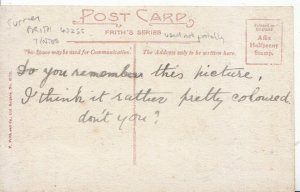 Surrey
FRITH 60255
POST CARD.
FRITH'S SERIES
Used not postally
This Space may be used for Communication.
The Address only to be written here.
Affix
Halfpenny
Stamp.
Do you remember this picture,
I think it rather pretty coloured
don't you?